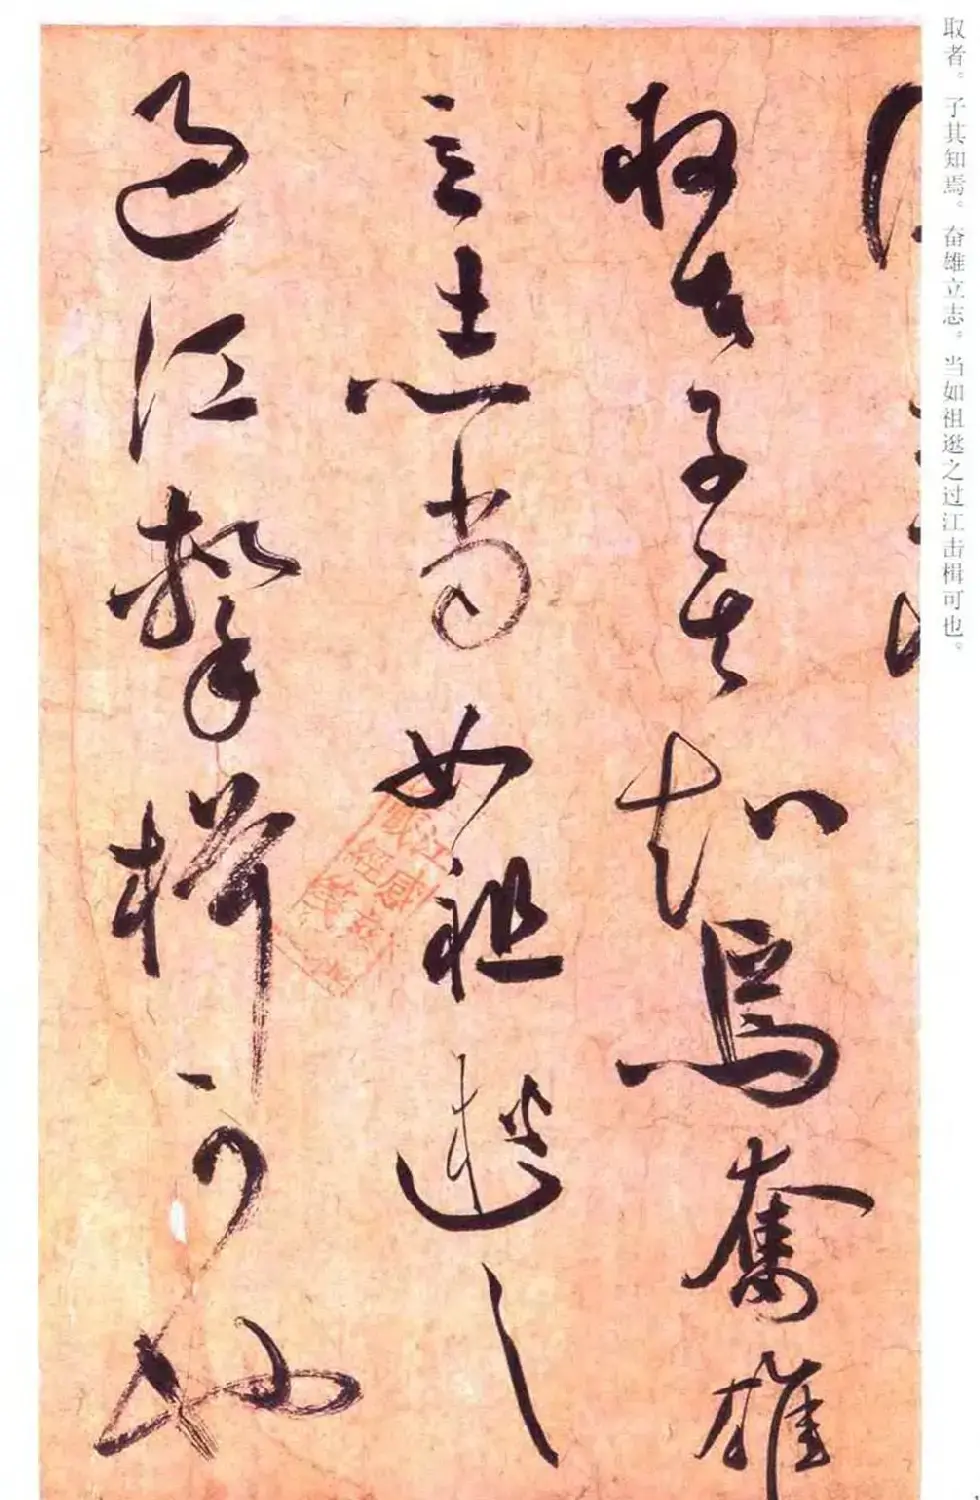 取者。子其知焉。奋雄立志。当如祖逖之过江击楫可也。
取者子其知焉奮雄
立志當如祖逖之
過江擊楫可也